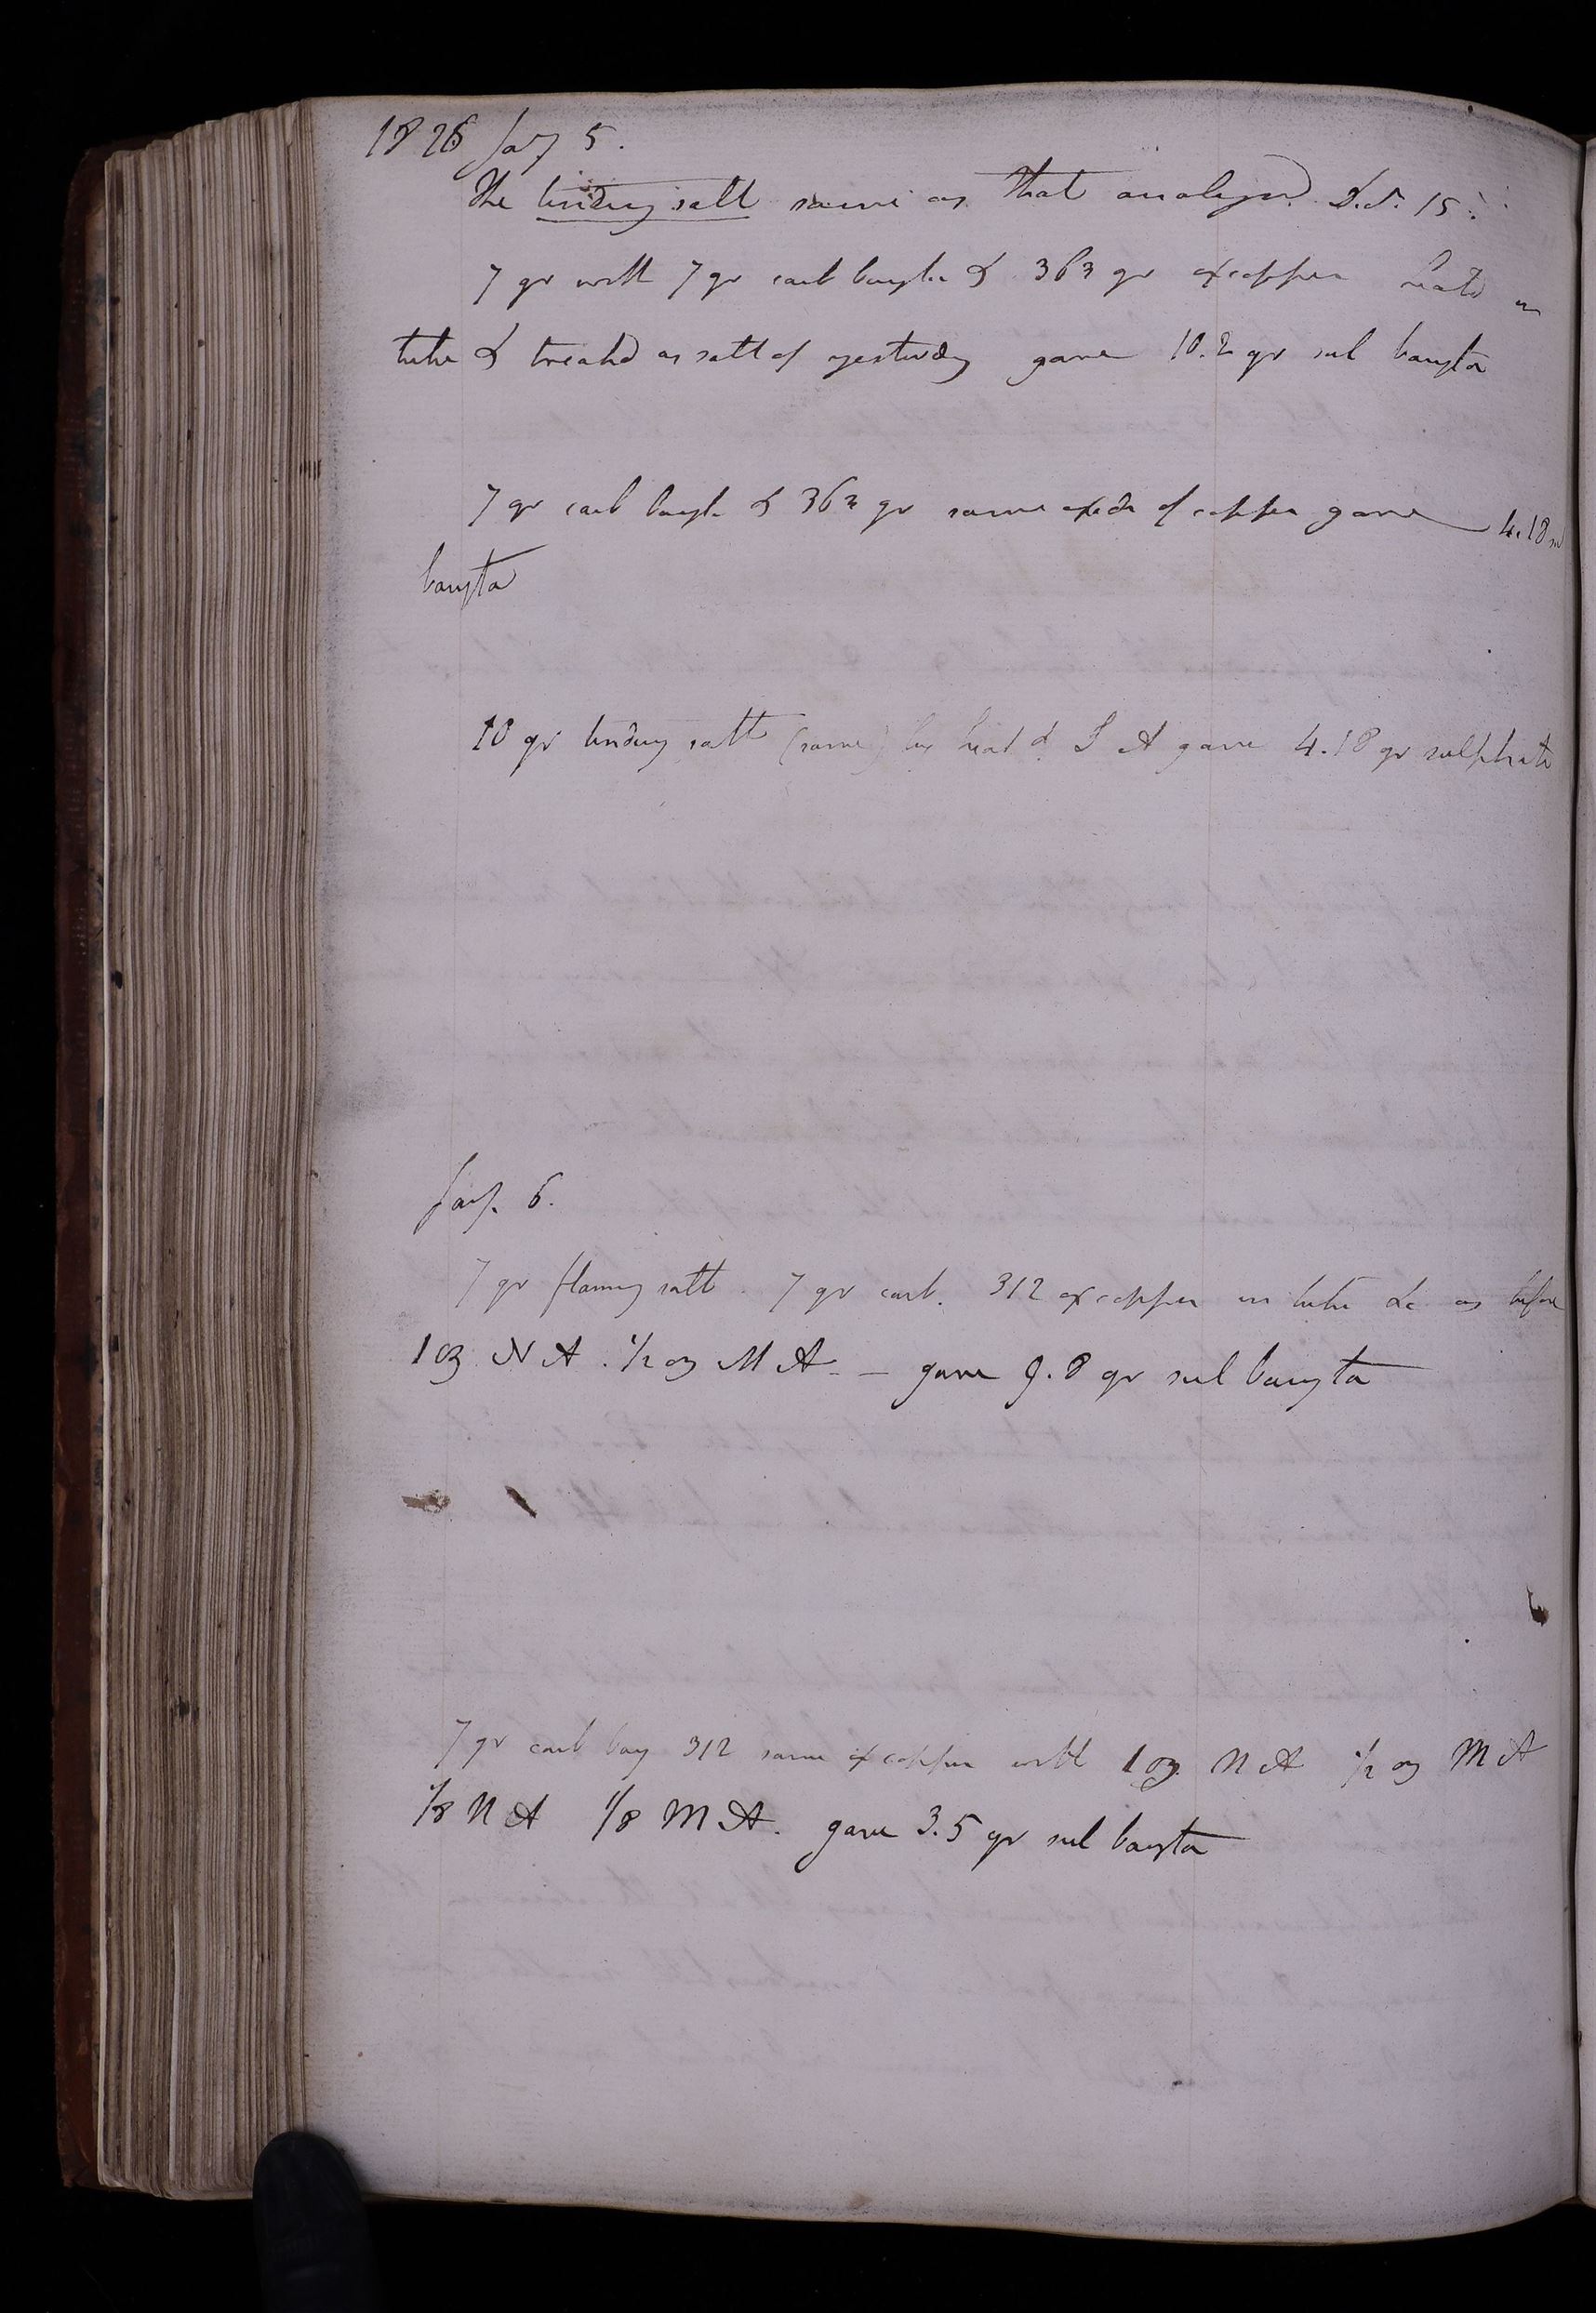 1826 Jay 5.
The tindery salt same as that analysed D.S. 15.
7 gr with 7 gr carb baryta & 363 gr ox copper heatd in
tube & treated as salt of yesterday gave 10.2 gr sul baryta
7 gr carb baryta & 363 gr same oxide of copper gave 4.18 sul
baryta
10 gr tindery salt (same) by heat & S A gave 4.18 gr sulphate
Jany. 6.
7 gr flaming salt. 7 gr carb. 312 ox copper in tube &c as before
1 oz N A. 1/2 oz M A - - gave 9.8 gr sul baryta
7 gr carb bary 312 same ox copper with 1 oz. N A 1/2 oz M A
1/8 N A 1/8 M A. gave 3.5 gr sul baryta